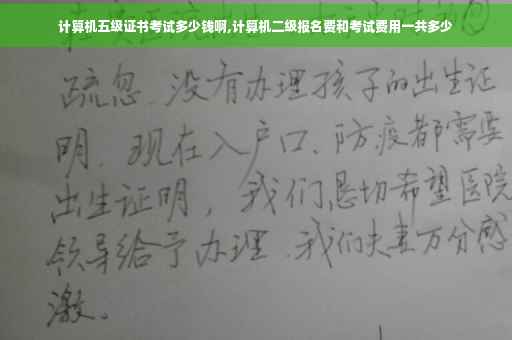 计算机五级证书考试多少钱啊,计算机二级报名费和考试费用一共多少
疏忽.没有办理孩子的出生证
明.现在入户口、防疫都需要
出生证明，我们恳切希望医院
领导给予办理.我们夫妻万分感
激。